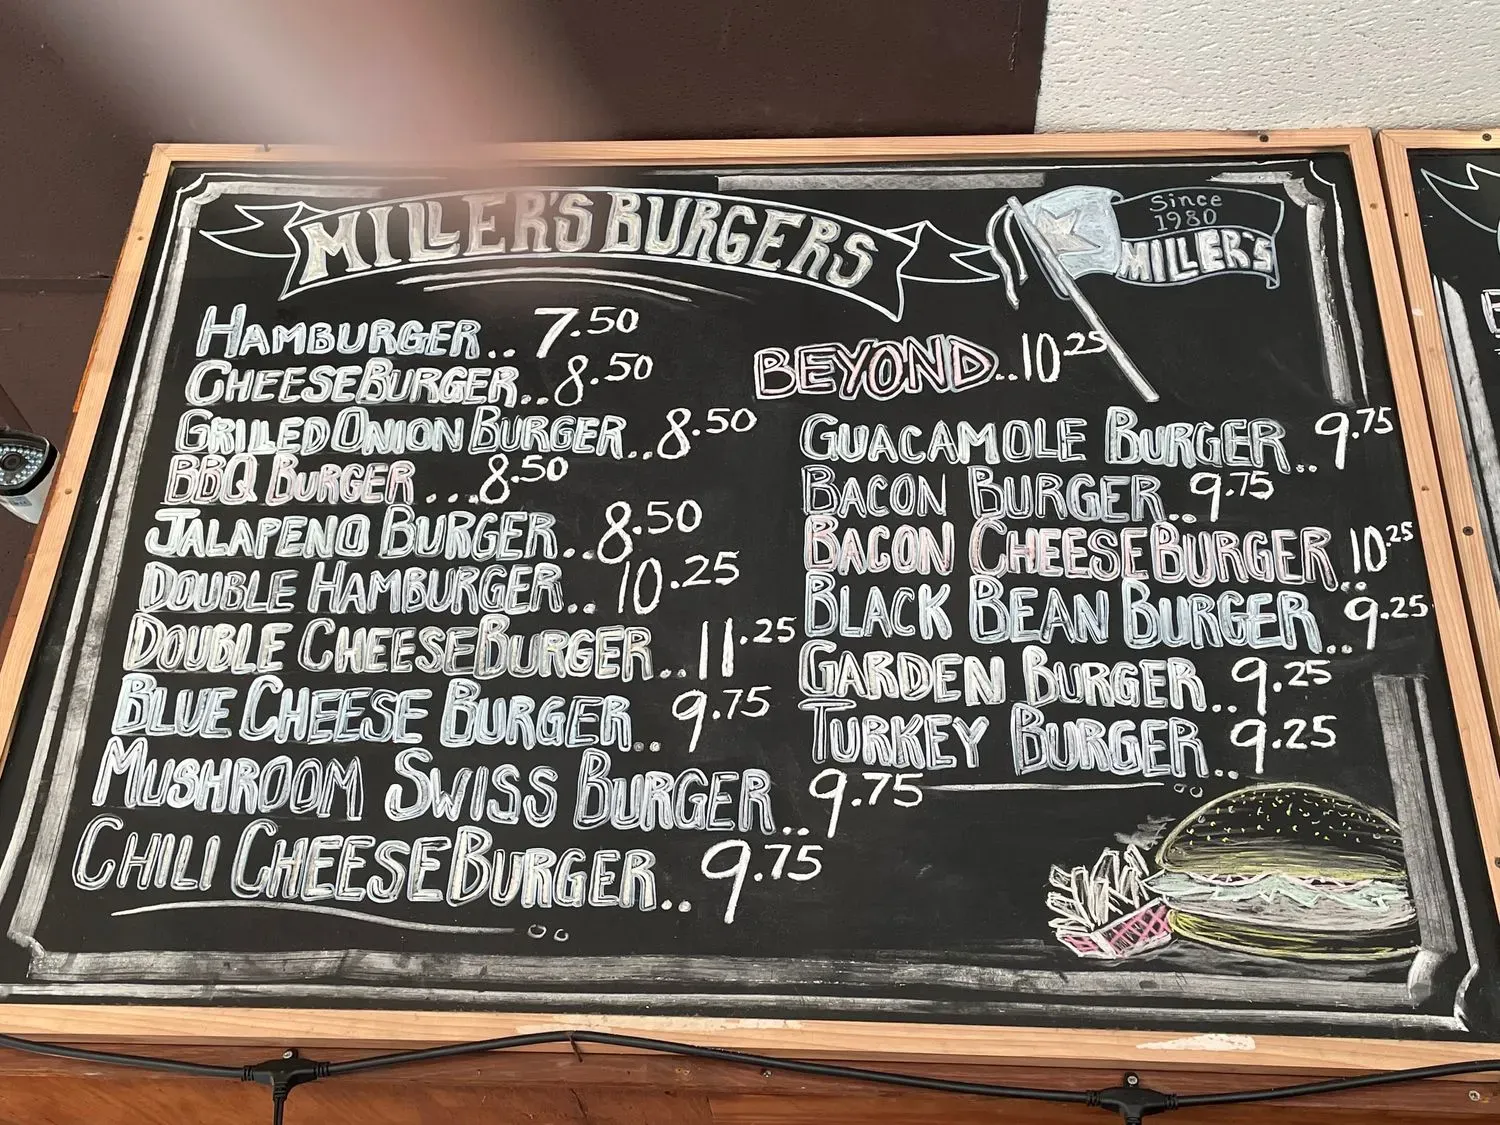 MILLER'S BURGERS
Since
1980
MILLER'S
HAMBURGER.. 7.50
CHEESEBURGER.. 8.50
GRILLED ONION BURGER.. 8.50
BBQ BURGER ... 8.50
JALAPENO BURGER.. 8.50
DOUBLE HAMBURGER.. 10.25
DOUBLE CHEESEBURGER.. 11.25
BLUE CHEESE BURGER.. 9.75
MUSHROOM SWISS BURGER.. 9.75
CHILI CHEESEBURGER.. 9.75
BEYOND.. 10.25
GUACAMOLE BURGER.. 9.75
BACON BURGER.. 9.75
BACON CHEESEBURGER.. 10.25
BLACK BEAN BURGER.. 9.25
GARDEN BURGER.. 9.25
TURKEY BURGER.. 9.25